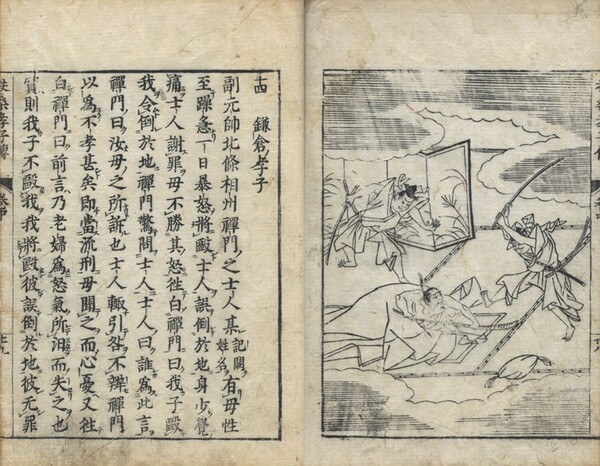 十四 鎌倉孝子
副元帥北條相州禪門之士人某記闕姓名有母性
至躁急一日暴怒將毆士人誤倒於地身少覺
痛士人謝罪母不勝其怒徃白禪門曰我子毆
我令倒於地禪門驚問士人士人曰誰爲此言
禪門曰汝母之所訴也士人輙引咎不辨禪門
以爲不孝甚矣即當流刑母聞之而心憂又徃
白禪門曰前言乃老婦爲怒氣所汨而失之也
實則我子不毆我我將毆彼誤倒於地彼无罪
孝子傳